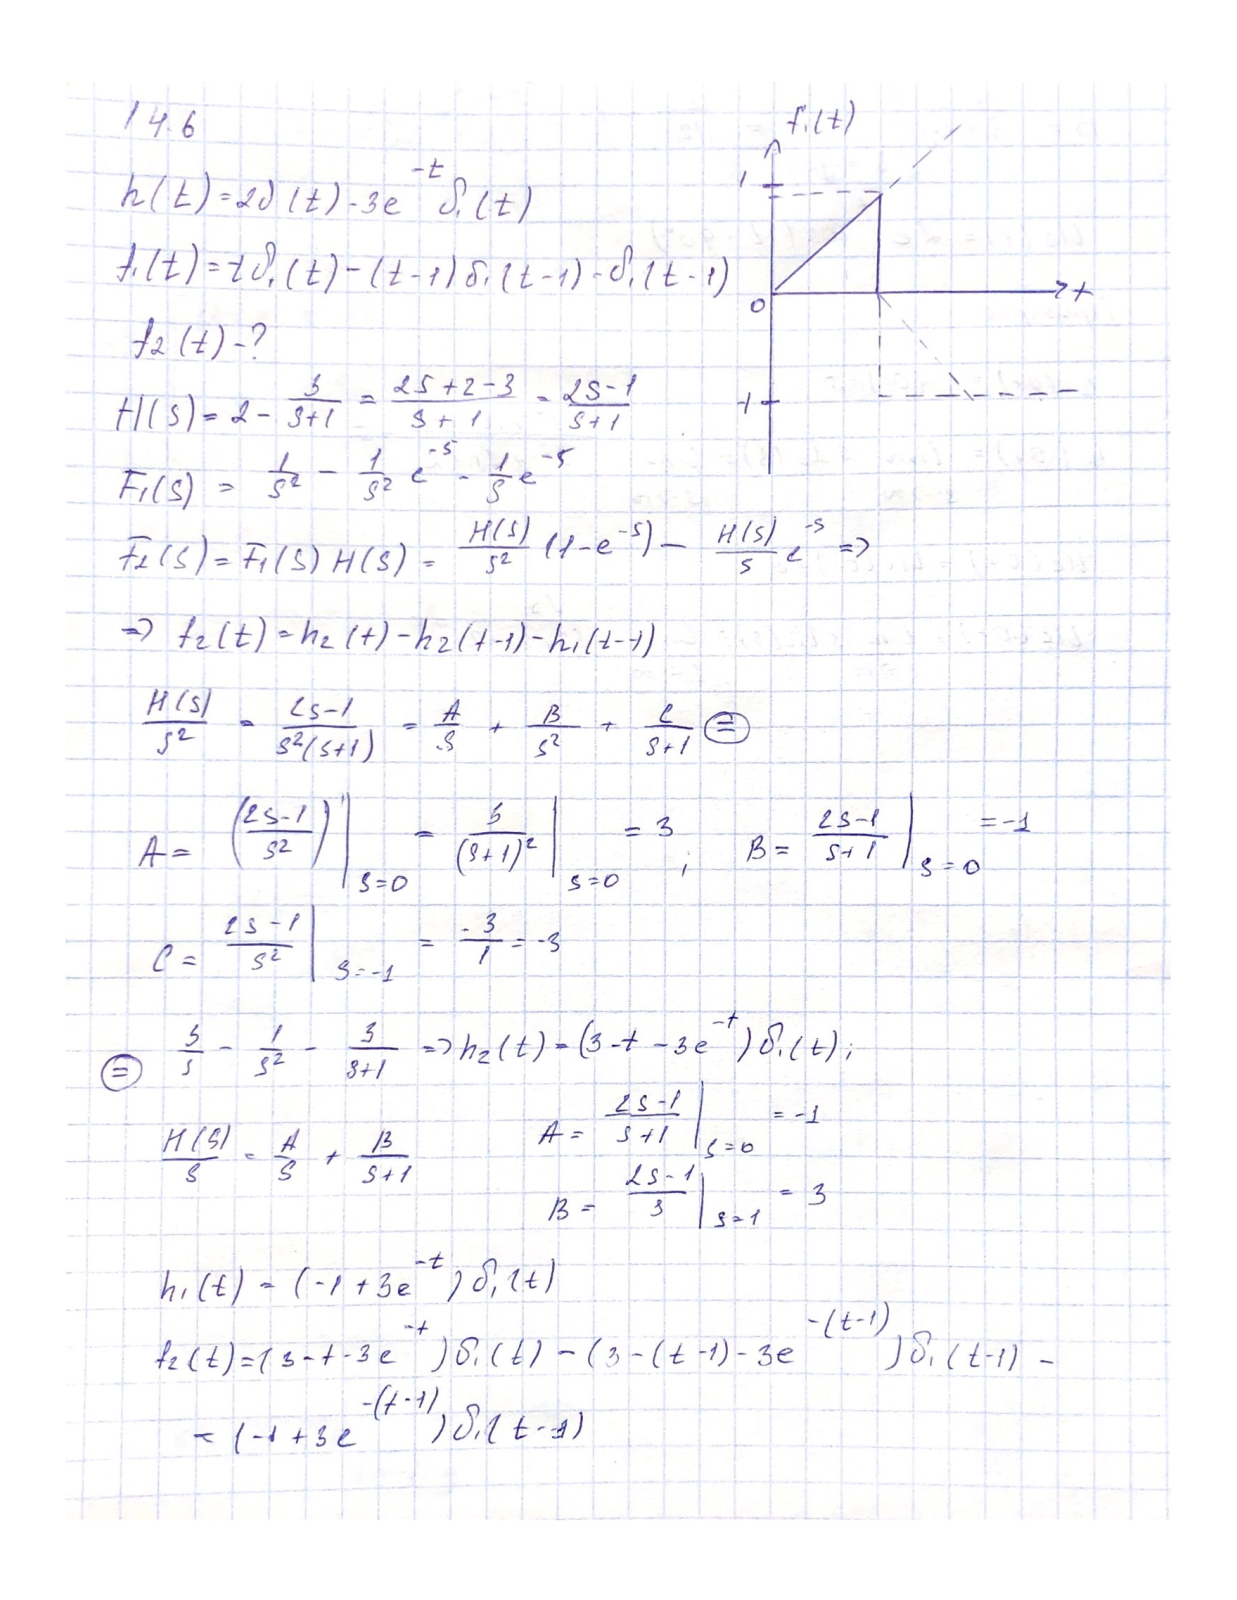 14.6
f₁(t)
h(t)=2δ(t)-3e^{-t}δ₁(t)
1
f₁(t)=tδ₁(t)-(t-1)δ₁(t-1)-δ₁(t-1)
0
t
f₂(t)-?
H(s)=2-\frac{3}{s+1}=\frac{2s+2-3}{s+1}=\frac{2s-1}{s+1}
-1
F₁(s)=\frac{1}{s²}-\frac{1}{s²}e^{-s}-\frac{1}{s}e^{-s}
F₂(s)=F₁(s)H(s)=\frac{H(s)}{s²}(1-e^{-s})-\frac{H(s)}{s}e^{-s}=>
=> f₂(t)=h₂(t)-h₂(t-1)-h₁(t-1)
\frac{H(s)}{s²}=\frac{2s-1}{s²(s+1)}=\frac{A}{s}+\frac{B}{s²}+\frac{C}{s+1} =
A=(\frac{2s-1}{s²})'|_{s=0}=\frac{3}{(s+1)²}|_{s=0}=3; B=\frac{2s-1}{s+1}|_{s=0}=-1
C=\frac{2s-1}{s²}|_{s=-1}=\frac{-3}{1}=-3
= \frac{3}{s}-\frac{1}{s²}-\frac{3}{s+1}=>h₂(t)=(3-t-3e^{-t})δ₁(t);
\frac{H(s)}{s}=\frac{A}{s}+\frac{B}{s+1} A=\frac{2s-1}{s+1}|_{s=0}=-1
B=\frac{2s-1}{s}|_{s=1}=3
h₁(t)=(-1+3e^{-t})δ₁(t)
f₂(t)=(3-t-3e^{-t})δ₁(t)-(3-(t-1)-3e^{-(t-1)})δ₁(t-1)-
-(-1+3e^{-(t-1)})δ₁(t-1)